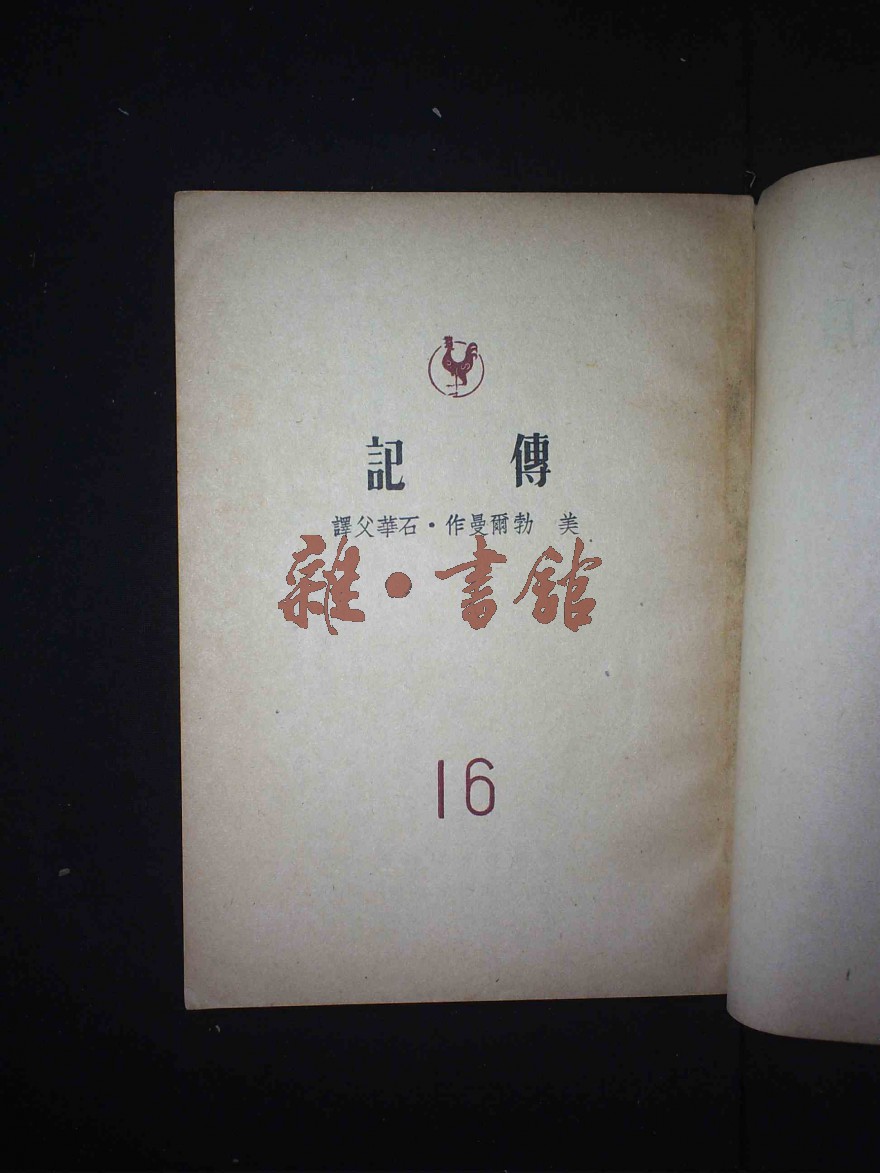 傳記
美 勃爾曼作·石華父譯
雜·書館
16